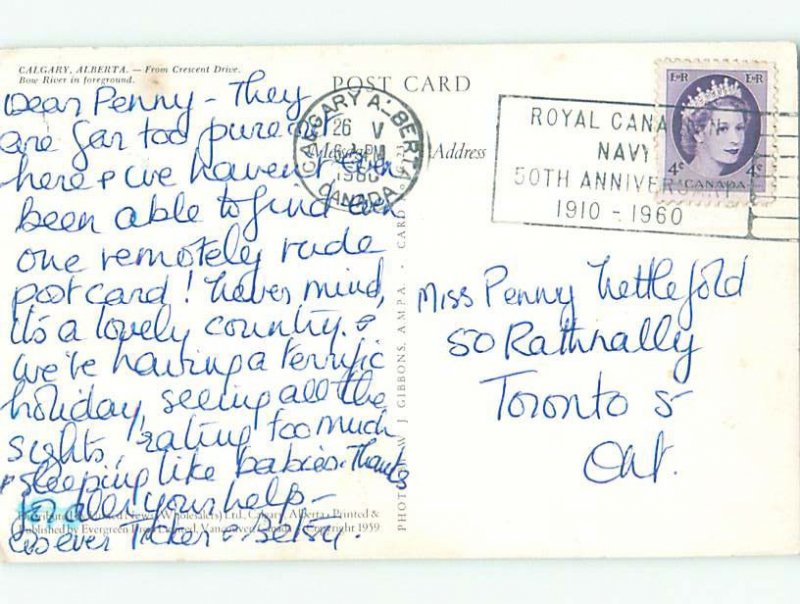 CALGARY, ALBERTA. — From Crescent Drive.
Bow River in foreground.
POST CARD
Address
Dear Penny - They
are far too pure out
here & we haven't even
been able to find even
one remotely rude
post card! Never mind,
it's a lovely country. &
we're having a terrific
holiday, seeing all the
sights, eating too much
& sleeping like babies. Thanks
for all your help -
as ever Tucker & Betsy.
CALGARY ALBERTA
26 V
PM
1960
CANADA
ROYAL CANADIAN
NAVY
50TH ANNIVERSARY
1910 - 1960
E II R E II R
4¢ 4¢
CANADA
Miss Penny Nettlefold
50 Rathnally
Toronto 5
Ont.
PHOTO BY W. J. GIBBONS, A.M.P.A. · CARD
Ltd., Calgary, Alberta • Printed &
Published by Evergreen Press Limited, Vancouver, Canada • Copyright 1959